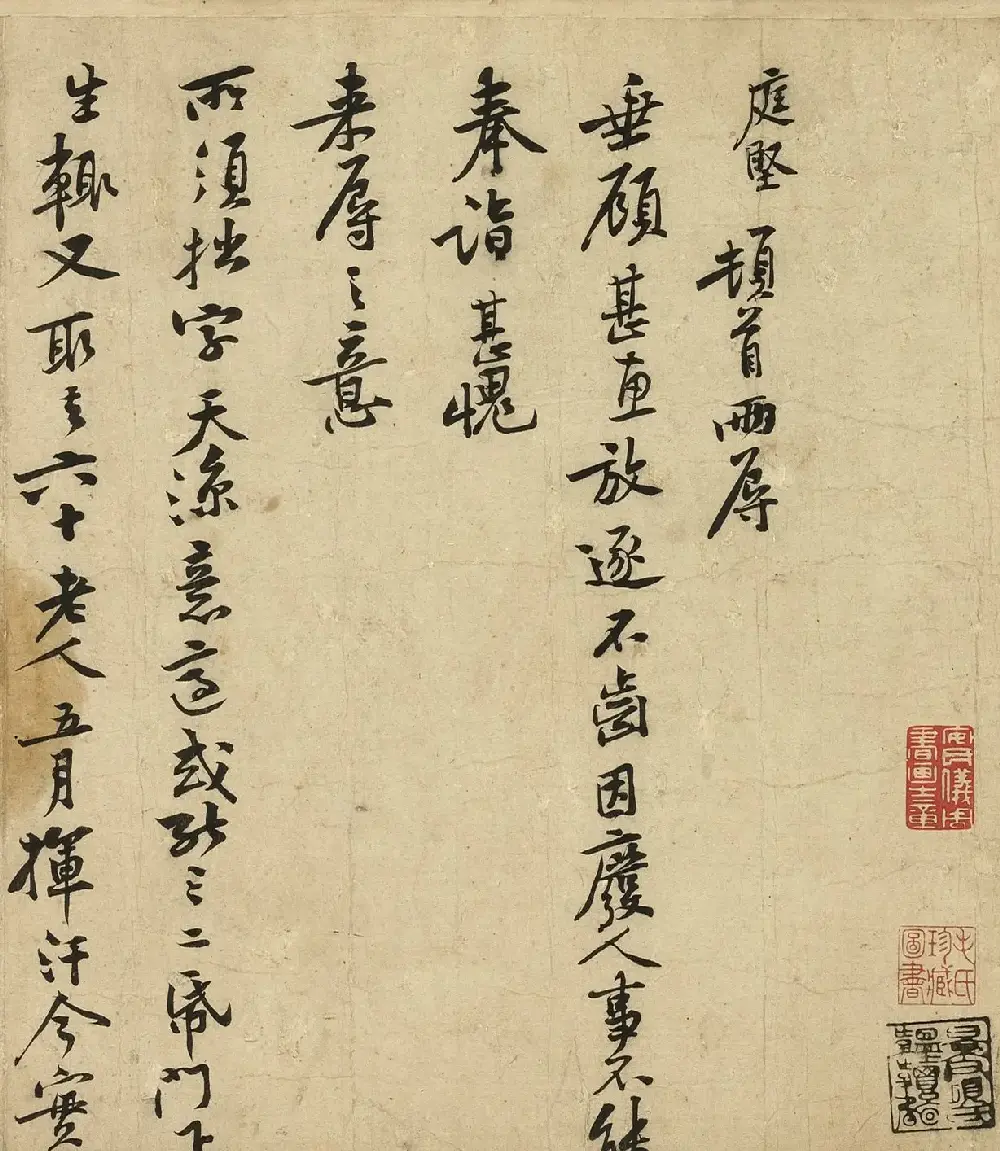 庭堅頓首兩辱
垂顧甚惠放逐不齒因廢人事不能
奉詣甚愧
來辱之意
所須拙字天涼意適或能三二紙門下
生輒又取去六十老人五月揮汗今實
安儀周書畫之章
毛氏珍藏圖書